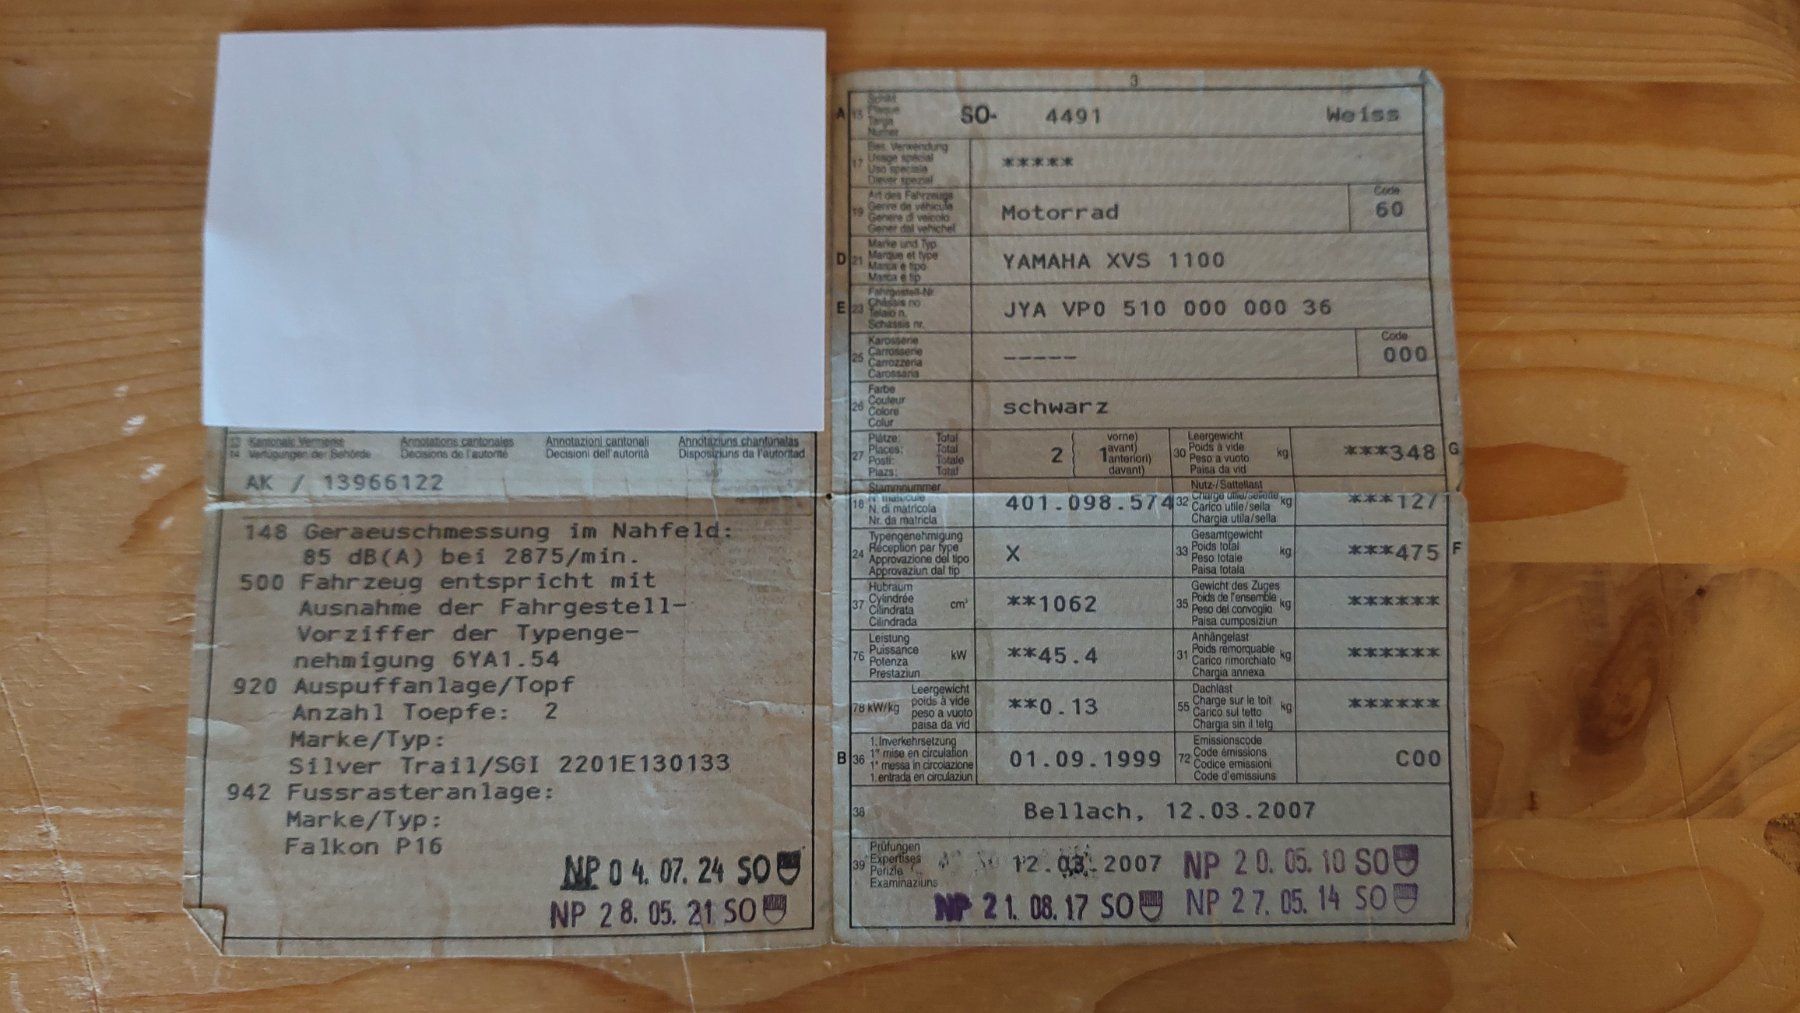 13 Kantonale Vermerke Annotations cantonales Annotazioni cantonali Annotaziuns chantunalas
14 Verfügungen der Behörde Décisions de l'autorité Decisioni dell'autorità Disposiziuns da l'autoritad
AK / 13966122
148 Geraeuschmessung im Nahfeld:
85 dB(A) bei 2875/min.
500 Fahrzeug entspricht mit
Ausnahme der Fahrgestell-
Vorziffer der Typenge-
nehmigung 6YA1.54
920 Auspuffanlage/Topf
Anzahl Toepfe: 2
Marke/Typ:
Silver Trail/SGI 2201E130133
942 Fussrasteranlage:
Marke/Typ:
Falkon P16
NP 04.07.24 SO
NP 28.05.21 SO
3
A 15 Schild
Plaque
Targa
Numer
SO- 4491 Weiss
17 Bes. Verwendung
Usage spécial
Uso speciale
Diever spezial
*****
19 Art des Fahrzeugs
Genre de véhicule
Genere di veicolo
Gener dal vehichel
Motorrad
Code
60
D 21 Marke und Typ
Marque et type
Marca e tipo
Marca e tip
YAMAHA XVS 1100
E 23 Fahrgestell-Nr.
Châssis no
Telaio n.
Schassis nr.
JYA VP0 510 000 000 36
25 Karosserie
Carrosserie
Carrozzeria
Carossaria
-----
Code
000
26 Farbe
Couleur
Colore
Colur
schwarz
27 Plätze: Total
Places: Total
Posti: Totale
Plazs: Total
2 ( 1
vorne)
avant)
anteriori)
davant)
30 Leergewicht
Poids à vide
Peso a vuoto
Paisa da vid
kg
***348 G
18 Stammnummer
N° matricule
N. di matricola
Nr. da matricla
401.098.574
32 Nutz-/Sattellast
Charge utile/sellette
Carico utile/sella
Chargia utila/sella
kg
***127
24 Typengenehmigung
Réception par type
Approvazione del tipo
Approvaziun dal tip
X
33 Gesamtgewicht
Poids total
Peso totale
Paisa totala
kg
***475 F
37 Hubraum
Cylindrée
Cilindrata
Cilindrada
cm³
**1062
35 Gewicht des Zuges
Poids de l'ensemble
Peso del convoglio
Paisa cumposiziun
kg
******
76 Leistung
Puissance
Potenza
Prestaziun
kW
**45.4
31 Anhängelast
Poids remorquable
Carico rimorchiato
Chargia annexa
kg
******
78 kW/kg
Leergewicht
poids à vide
peso a vuoto
paisa da vid
**0.13
55 Dachlast
Charge sur le toit
Carico sul tetto
Chargia sin il tetg
kg
******
B 36 1. Inverkehrsetzung
1re mise en circulation
1a messa in circolazione
1. entrada en circulaziun
01.09.1999
72 Emissionscode
Code émissions
Codice emissioni
Code d'emissiuns
C00
38 Bellach, 12.03.2007
39 Prüfungen
Expertises
Perizie
Examinaziuns
12.03.2007 NP 20.05.10 SO
NP 21.08.17 SO NP 27.05.14 SO